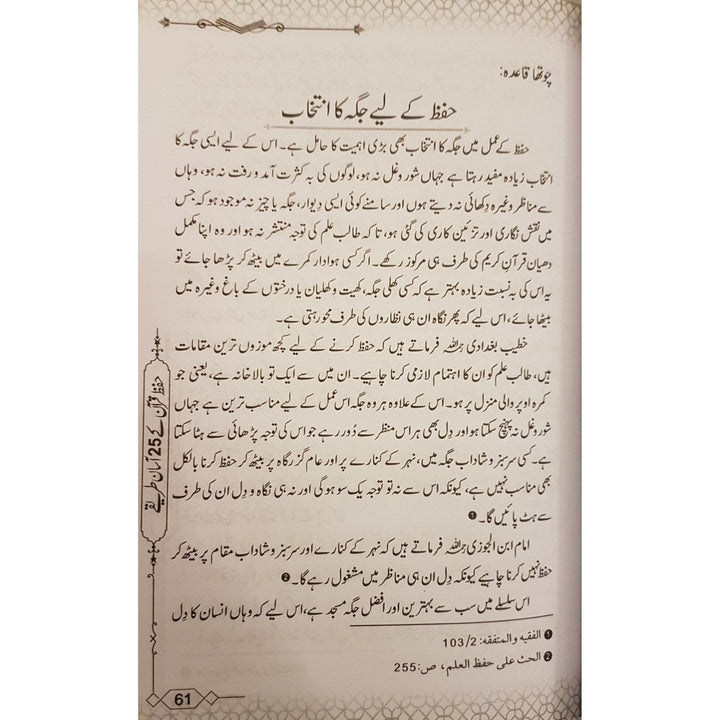 چوتھا قاعدہ:
حفظ کے لیے جگہ کا انتخاب
حفظ کے عمل میں جگہ کا انتخاب بھی بڑی اہمیت کا حامل ہے۔ اس کے لیے ایسی جگہ کا
انتخاب زیادہ مفید رہتا ہے جہاں شور و غل نہ ہو، لوگوں کی بہ کثرت آمد و رفت نہ ہو، وہاں
سے مناظر وغیرہ دِکھائی نہ دیتے ہوں اور سامنے کوئی ایسی دیوار، جگہ یا چیز نہ موجود ہو کہ جس
میں نقش نگاری اور تزئین کاری کی گئی ہو، تا کہ طالب علم کی توجہ منتشر نہ ہو اور وہ اپنا مکمل
دھیان قرآنِ کریم کی طرف ہی مرکوز رکھے۔ اگر کسی ہوادار کمرے میں بیٹھ کر پڑھا جائے تو
یہ اس کی بہ نسبت زیادہ بہتر ہے کہ کسی کھلی جگہ، کھیت و کھلیان یا درختوں کے باغ وغیرہ میں
بیٹھا جائے، اس لیے کہ پھر نگاہ ان ہی نظاروں کی طرف محو رہتی ہے۔
خطیب بغدادی رحمہ اللہ فرماتے ہیں کہ حفظ کرنے کے لیے کچھ موزوں ترین مقامات
ہیں، طالب علم کو ان کا اہتمام لازمی کرنا چاہیے۔ ان میں سے ایک تو بالا خانہ ہے، یعنی جو
کمرہ اوپر والی منزل پر ہو۔ اس کے علاوہ ہر وہ جگہ اس عمل کے لیے مناسب ترین ہے جہاں
شور و غل نہ پہنچ سکتا ہو اور دِل بھی ہر اس منظر سے دُور رہے جو اس کی توجہ پڑھائی سے ہٹا سکتا
ہے۔ کسی سرسبز و شاداب جگہ میں، نہر کے کنارے پر اور عام گزرگاہ پر بیٹھ کر حفظ کرنا بالکل
بھی مناسب نہیں ہے، کیونکہ اس سے نہ تو توجہ یک سو ہو گی اور نہ ہی نگاہ و دِل ان کی طرف
سے ہٹ پائیں گا۔ ❶
امام ابن الجوزی رحمہ اللہ فرماتے ہیں کہ نہر کے کنارے اور سرسبز و شاداب مقام پر بیٹھ کر
حفظ نہیں کرنا چاہیے کیونکہ دِل ان ہی مناظر میں مشغول رہے گا۔ ❷
اس سلسلے میں سب سے بہترین اور افضل جگہ مسجد ہے، اس لیے کہ وہاں انسان کا دِل
❶ الفقيه والمتفقه: 103/2
❷ الحث على حفظ العلم، ص: 255
حفظِ قرآن کے 25 آسان طریقے
61